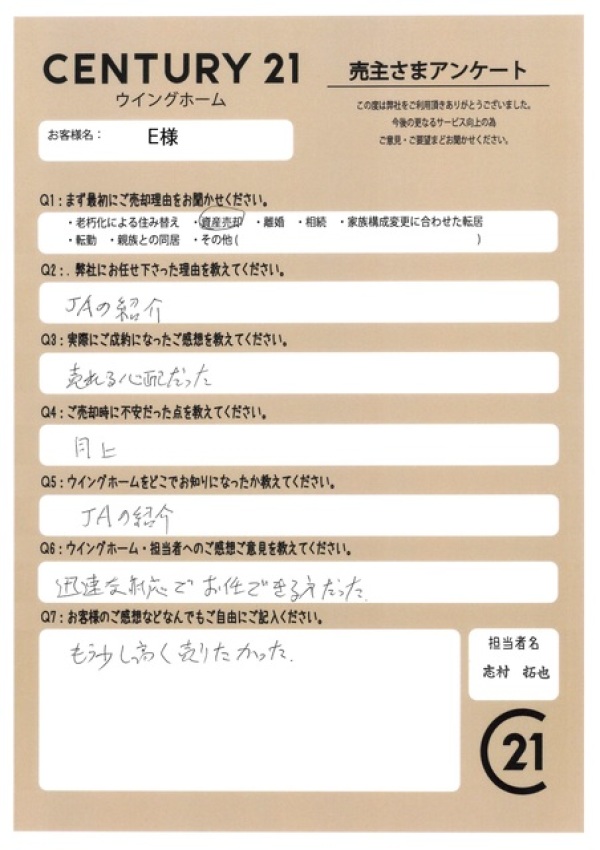 CENTURY 21
ウイングホーム
売主さまアンケート
この度は弊社をご利用頂きありがとうございました。
今後の更なるサービス向上の為
ご意見・ご要望までお聞かせください。
お客様名: E様
Q1:まず最初にご売却理由をお聞かせください。
・老朽化による住み替え ・資産売却 ・離婚 ・相続 ・家族構成変更に合わせた転居
・転勤 ・親族との同居 ・その他( )
Q2:.弊社にお任せ下さった理由を教えてください。
JAの紹介
Q3:実際にご成約になったご感想を教えてください。
売れる心配だった
Q4:ご売却時に不安だった点を教えてください。
同上
Q5:ウイングホームをどこでお知りになったか教えてください。
JAの紹介
Q6:ウイングホーム・担当者へのご感想ご意見を教えてください。
迅速な対応でお任できる方だった.
Q7:お客様のご感想などなんでもご自由にご記入ください。
もう少し高く売りたかった.
担当者名
志村 拓也
21